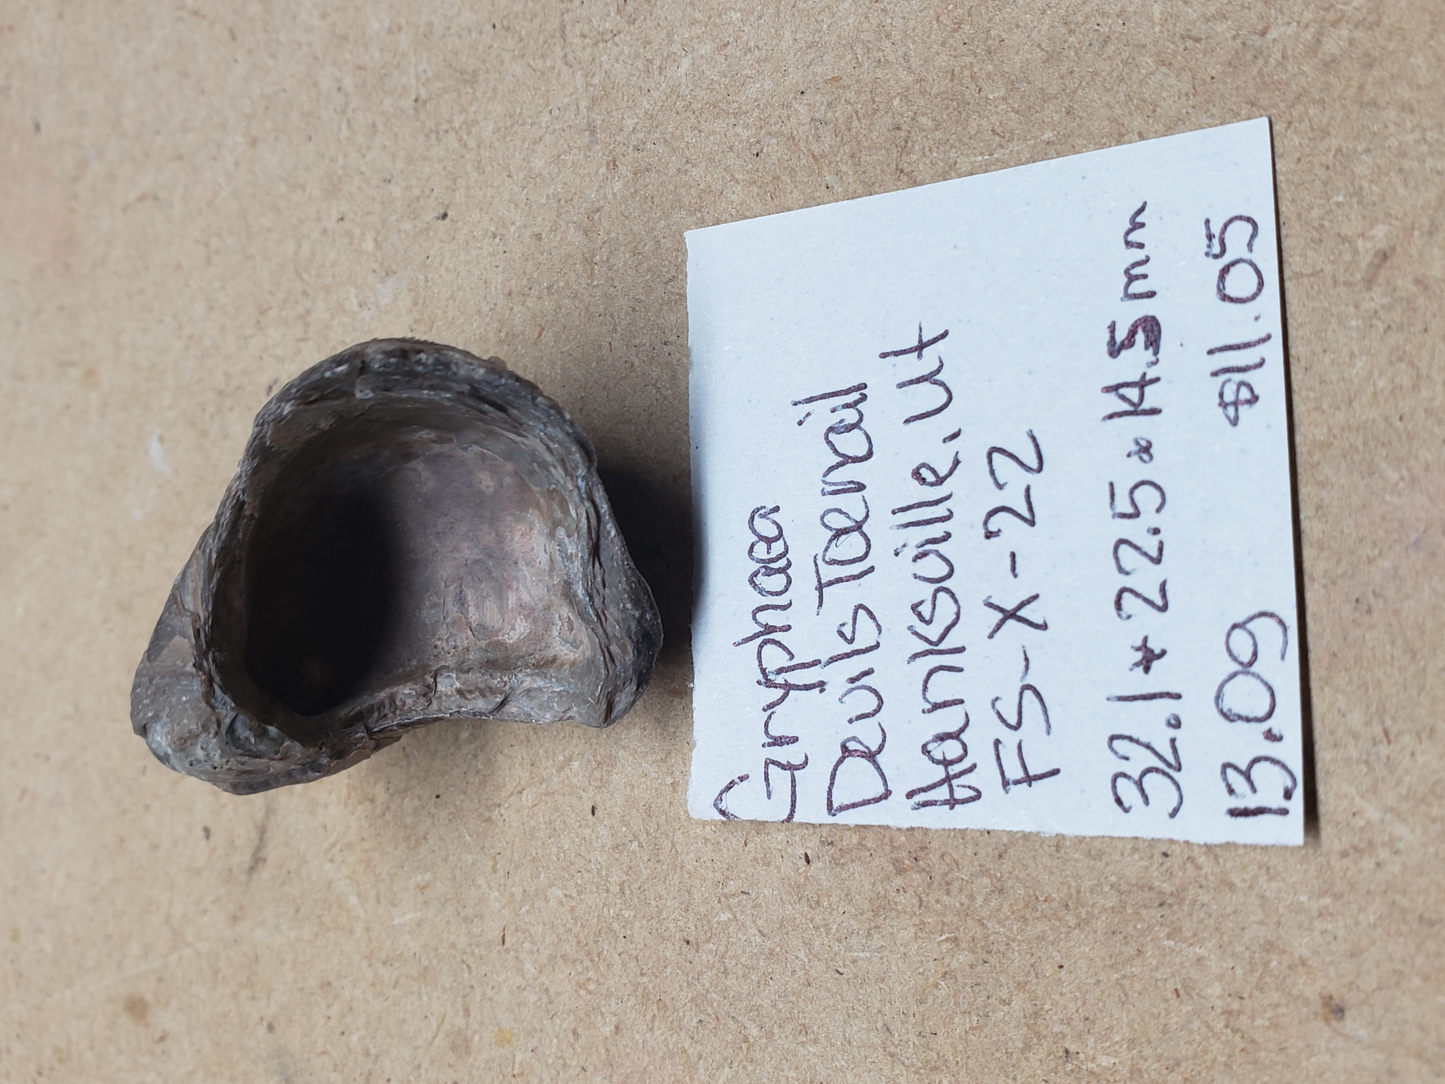 Gryphaea
Devils Toenail
Hanksville, Ut
FS-X-22
32.1 * 22.5 * 14.5mm
13.09 $11.05